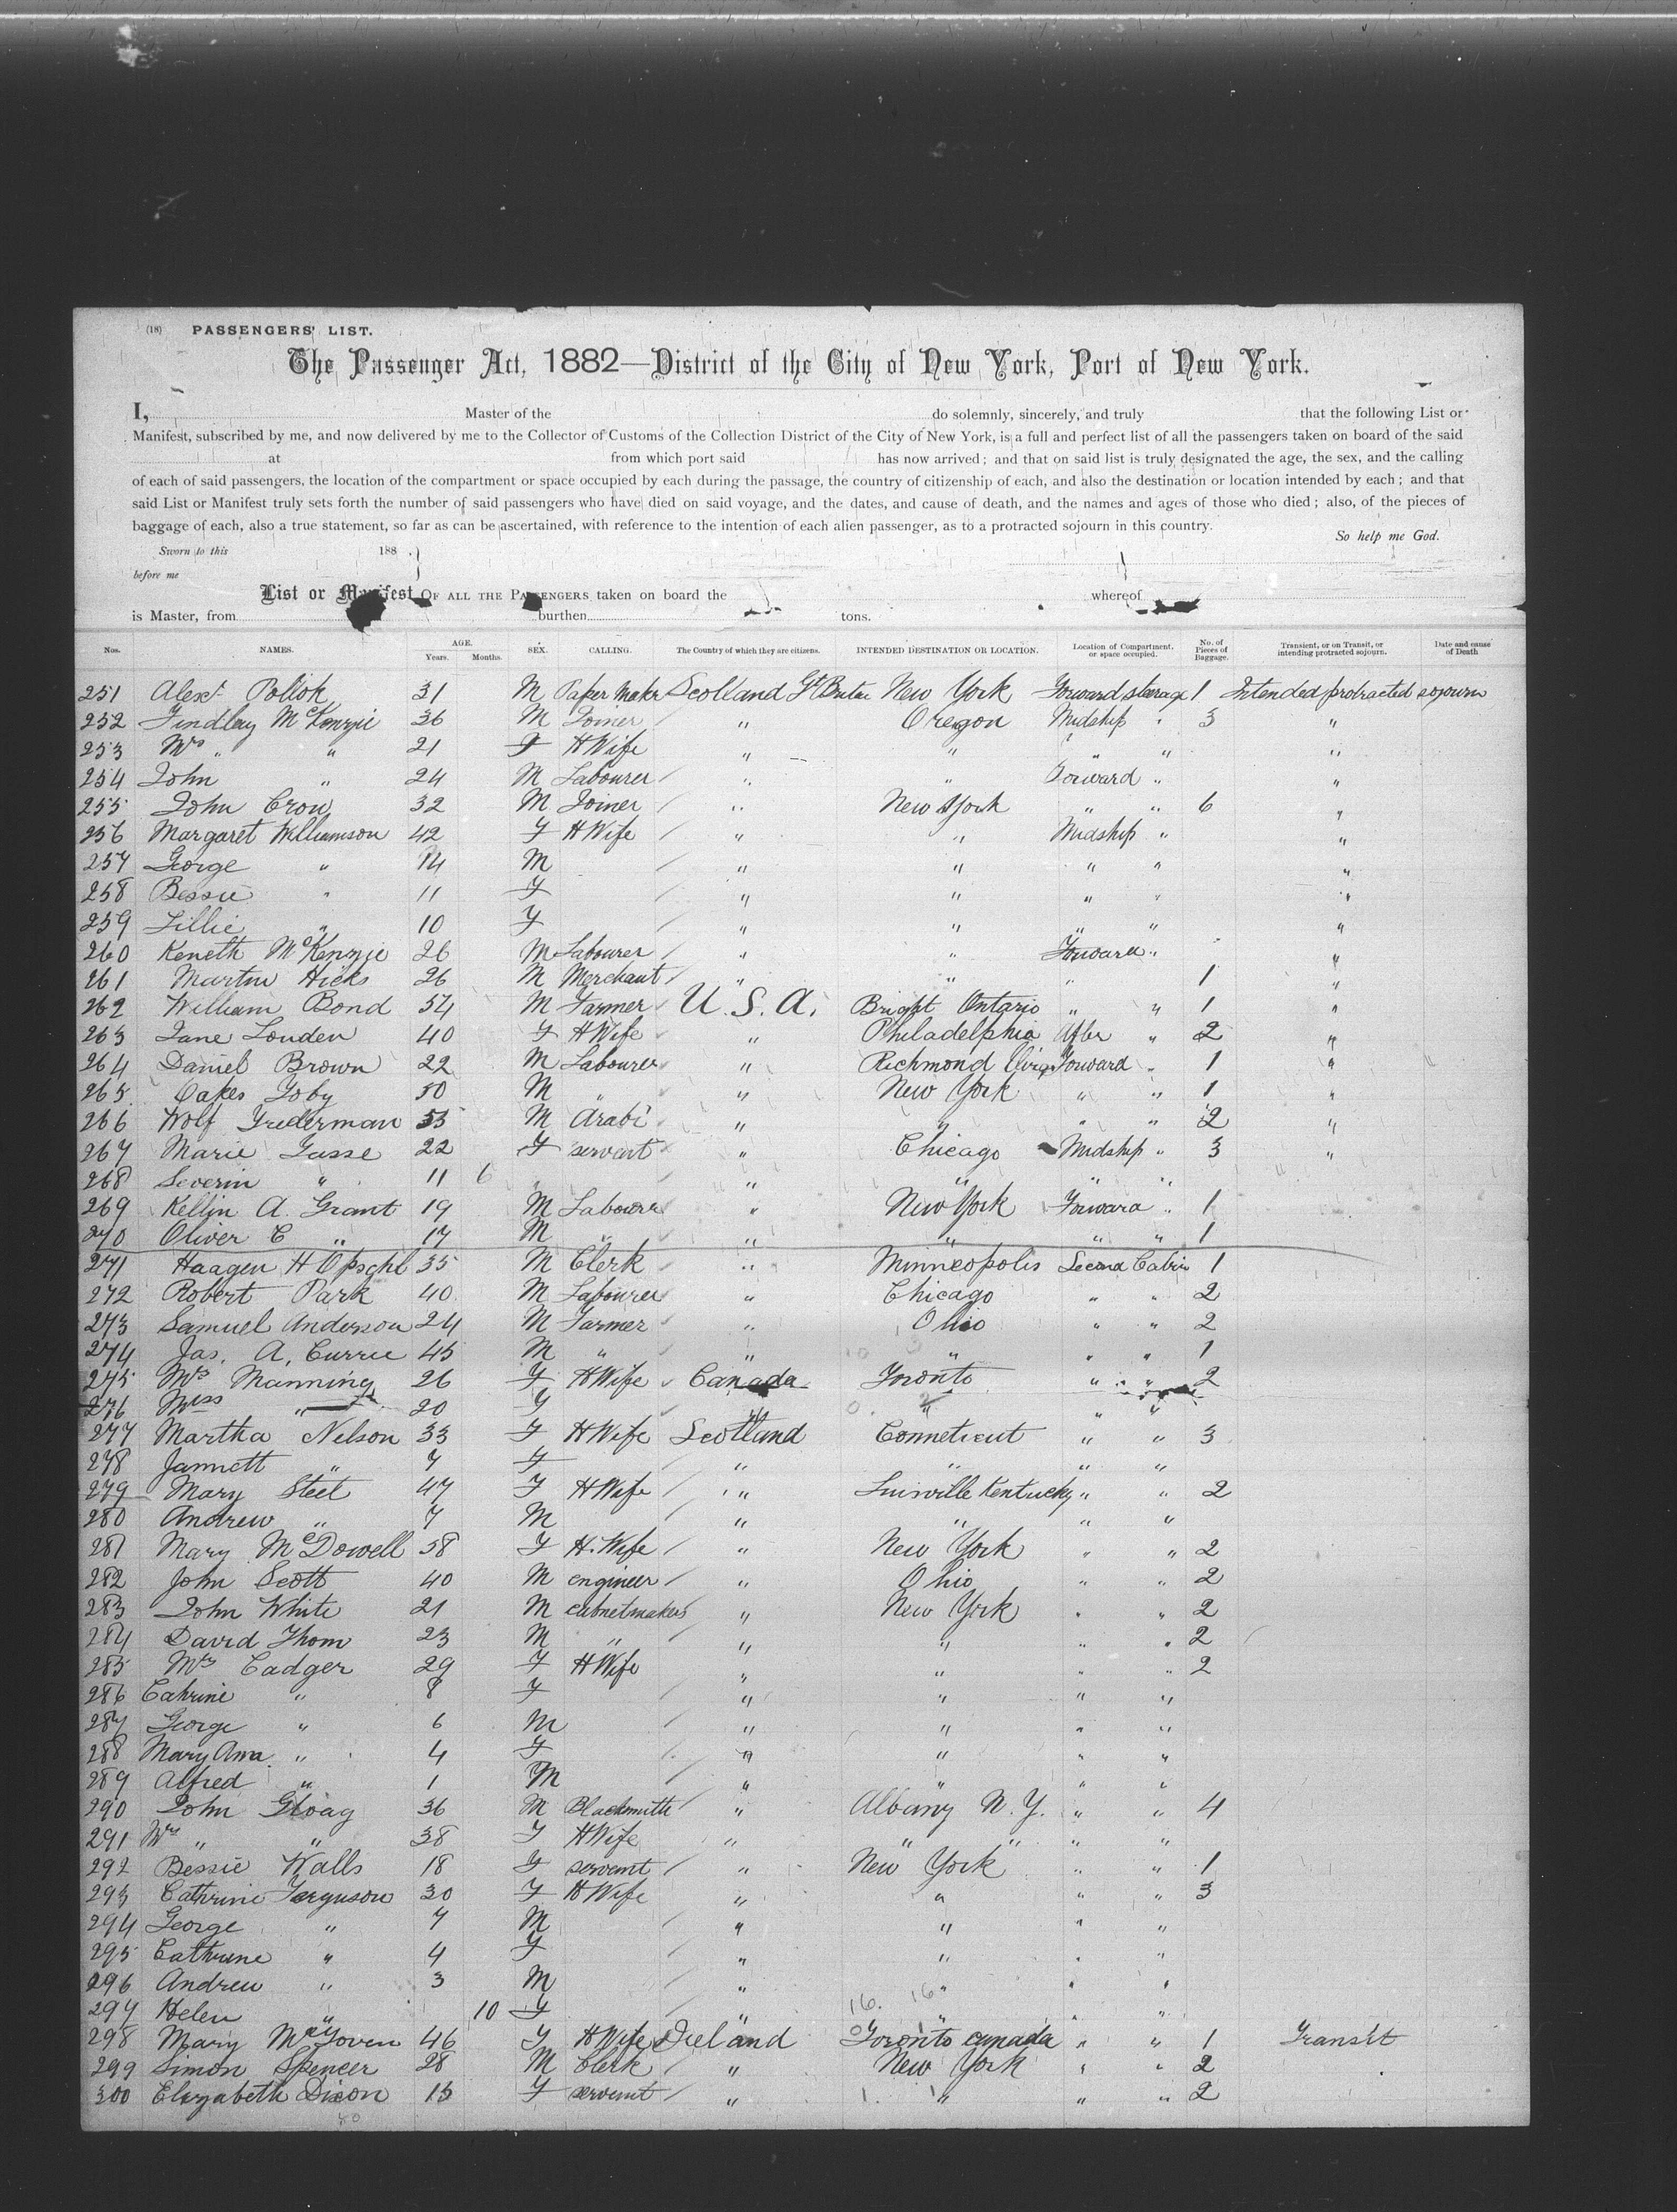 (18) PASSENGERS' LIST.
The Passenger Act, 1882—District of the City of New York, Port of New York.
I, Master of the do solemnly, sincerely, and truly that the following List or
Manifest, subscribed by me, and now delivered by me to the Collector of Customs of the Collection District of the City of New York, is a full and perfect list of all the passengers taken on board of the said
at from which port said has now arrived; and that on said list is truly designated the age, the sex, and the calling
of each of said passengers, the location of the compartment or space occupied by each during the passage, the country of citizenship of each, and also the destination or location intended by each; and that
said List or Manifest truly sets forth the number of said passengers who have died on said voyage, and the dates, and cause of death, and the names and ages of those who died; also, of the pieces of
baggage of each, also a true statement, so far as can be ascertained, with reference to the intention of each alien passenger, as to a protracted sojourn in this country.
So help me God.
Sworn to this 188
before me
List or Manifest OF ALL THE PASSENGERS taken on board the whereof
is Master, from burthen tons.
Nos. NAMES. AGE. Years. Months. SEX. CALLING. The Country of which they are citizens. INTENDED DESTINATION OR LOCATION. Location of Compartment, or space occupied. No. of Pieces of Baggage. Transient, or on Transit, or intending protracted sojourn. Date and cause of Death
251 Alexr Pollok 31 M Paper Maker Scotland Gt Britn New York Forward steerage 1 Intended protracted sojourn
252 Findlay McKenzie 36 M Joiner " Oregon Midship " 3 "
253 Mrs " " 21 F H Wife " " " " "
254 John " 24 M Labourer " " Forward " "
255 John Crow 32 M Joiner " New York " " 6 "
256 Margaret Williamson 42 F H Wife " " Midship " "
257 George " 14 M " " " " "
258 Bessie " 11 F " " " " "
259 Lillie " 10 F " " " " "
260 Keneth McKenzie 26 M Labourer " " Forward " "
261 Martin Hicks 26 M Merchant " " " 1 "
262 William Bond 54 M Farmer U.S.A. Bright Ontario " " 1 "
263 Jane Louden 40 F H Wife " Philadelphia After " 2 "
264 Daniel Brown 22 M Labourer " Richmond Forward " 1 "
265 Oakes Toby 50 M " " New York " " 1 "
266 Wolf Frederman M Arabi " " " " 2 "
267 Marie Gasse 22 F servant " Chicago Midship " 3 "
268 Severin " 11 6 " " " "
269 Kellin A. Grant 19 M Labourer " New York Forward " 1
270 Oliver C " 17 M " " " " " 1
271 Haagen H 35 M Clerk " Minneopolis Second Cabin 1
272 Robert Park 40 M Labourer " Chicago " " 2
273 Samuel Anderson 24 M Farmer " Ohio " " 2
274 Jas. A. Currie 45 M " " " " " 1
275 Mrs Manning 26 F H Wife Canada Toronto " " 2
276 Miss " 20 F " " " "
277 Martha Nelson 33 F H Wife Scotland Conneticut " " 3
278 Jannett " 7 F " " " "
279 Mary Steel 47 F H Wife " Luisville Kentucky " " 2
280 Andrew " 7 M " " " "
281 Mary McDowell 58 F H. Wife " New York " " 2
282 John Scott 40 M engineer " Ohio " " 2
283 John White 21 M cabnetmaker " New York " " 2
284 David Thom 23 M " " " " " 2
285 Mrs Cadger 29 F H Wife " " " " 2
286 Cahrine " 8 F " " " "
287 George " 6 M " " " "
288 Mary Ann " 4 F " " " "
289 Alfred " 1 M " " " "
290 John Gloag 36 M Blacksmith " Albany N.Y. " " 4
291 Mrs " " 38 F H Wife " " " " "
292 Bessie Walls 18 F servant " New York " " 1
293 Cathrine Ferguson 30 F H Wife " " " " 3
294 George " 7 M " " " "
295 Cathrine " 4 F " " " "
296 Andrew " 3 M " " " "
297 Helen " 10 F " " " "
298 Mary McGoven 46 F H Wife Ireland Toronto canada " " 1 Transit
299 Simon Spencer 28 M Clerk " New York " " 2
300 Elizabeth Dixon 15 F servant " " " " 2